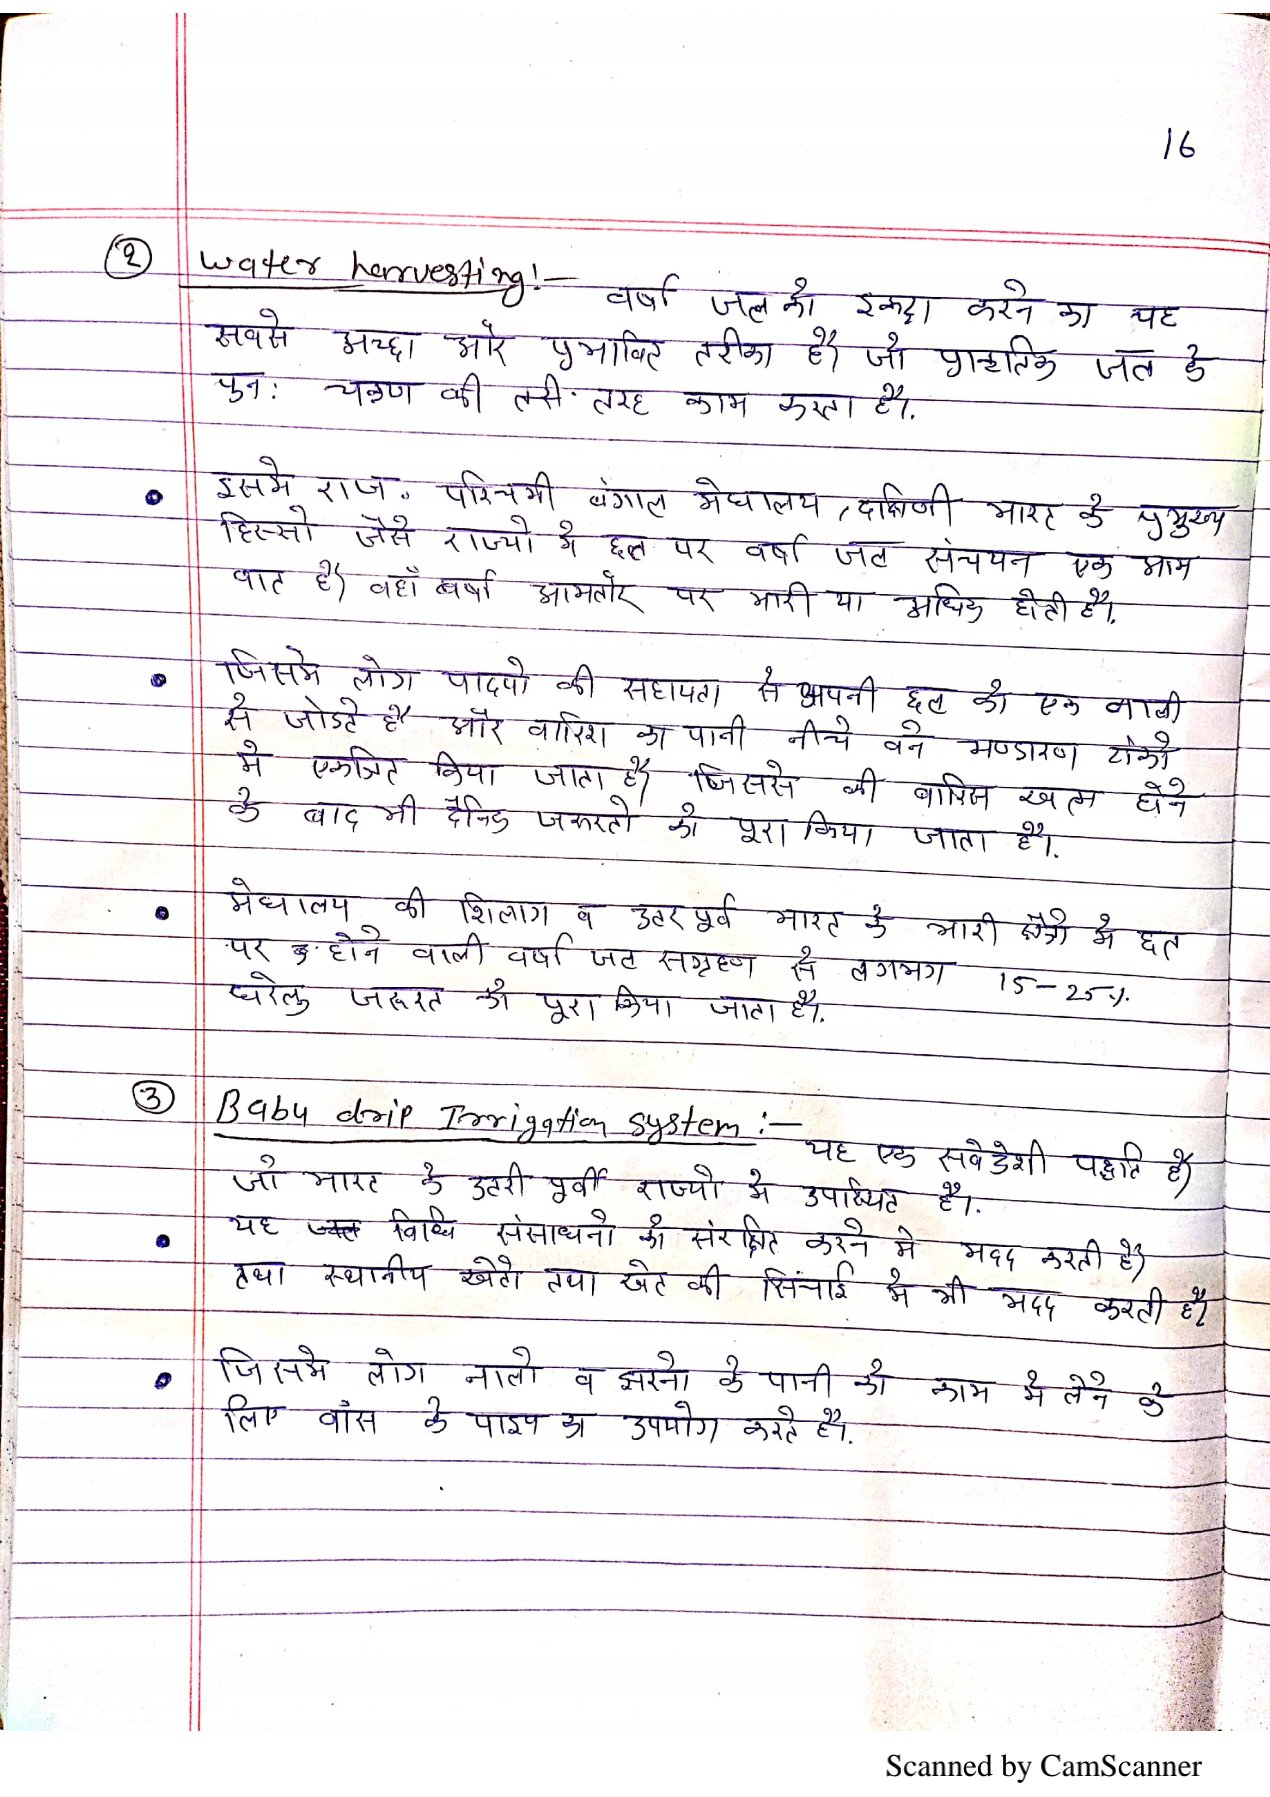 16
② water harvesting:- वर्षा जल को इकठ्ठा करने का यह
सबसे अच्छा और प्रभावित तरीका है। जो प्राकृतिक जल के
पुन: चक्रण की तरह काम करता है।.
• इसमे राज. पश्चिमी बंगाल मेघालय, दक्षिणी भारत के प्रमुख्य
हिस्सो जैसे राज्यो मे छत पर वर्षा जल संचयन एक आम
बात है। वहाँ वर्षा आमतौर पर भारी या अधिक होती है।.
• जिसमे लोग पादपो की सहायता से अपनी छत को एक नाली
से जोडते है और बारिश का पानी नीचे बने भण्डारण टांको
मे एकत्रित किया जाता है। जिससे की बारिस खत्म होने
के बाद भी दैनिक जरूरतो को पूरा किया जाता है।.
• मेघालय की शिलाग व उतर पूर्व भारत के भारी क्षैत्रो मे छत
पर होने वाली वर्षा जल सग्रहण से लगभग 15-25%
घरेलु जरूरत को पूरा किया जाता है।.
③ Babu drip Irrigation system :- यह एक सवेदेशी पद्धति है।
जो भारत के उतरी पूर्वी राज्यो मे उपस्थित है।.
• यह जल विधि संसाधनो को संरक्षित करने मे मदद करती है।
तथा स्थानीय खेतो तथा खेत की सिंचाई मे भी मदद करती है।
• जिसमे लोग नालो व झरनो के पानी को काम मे लेने के
लिए बाँस के पाइप का उपयोग करते है।.
Scanned by CamScanner